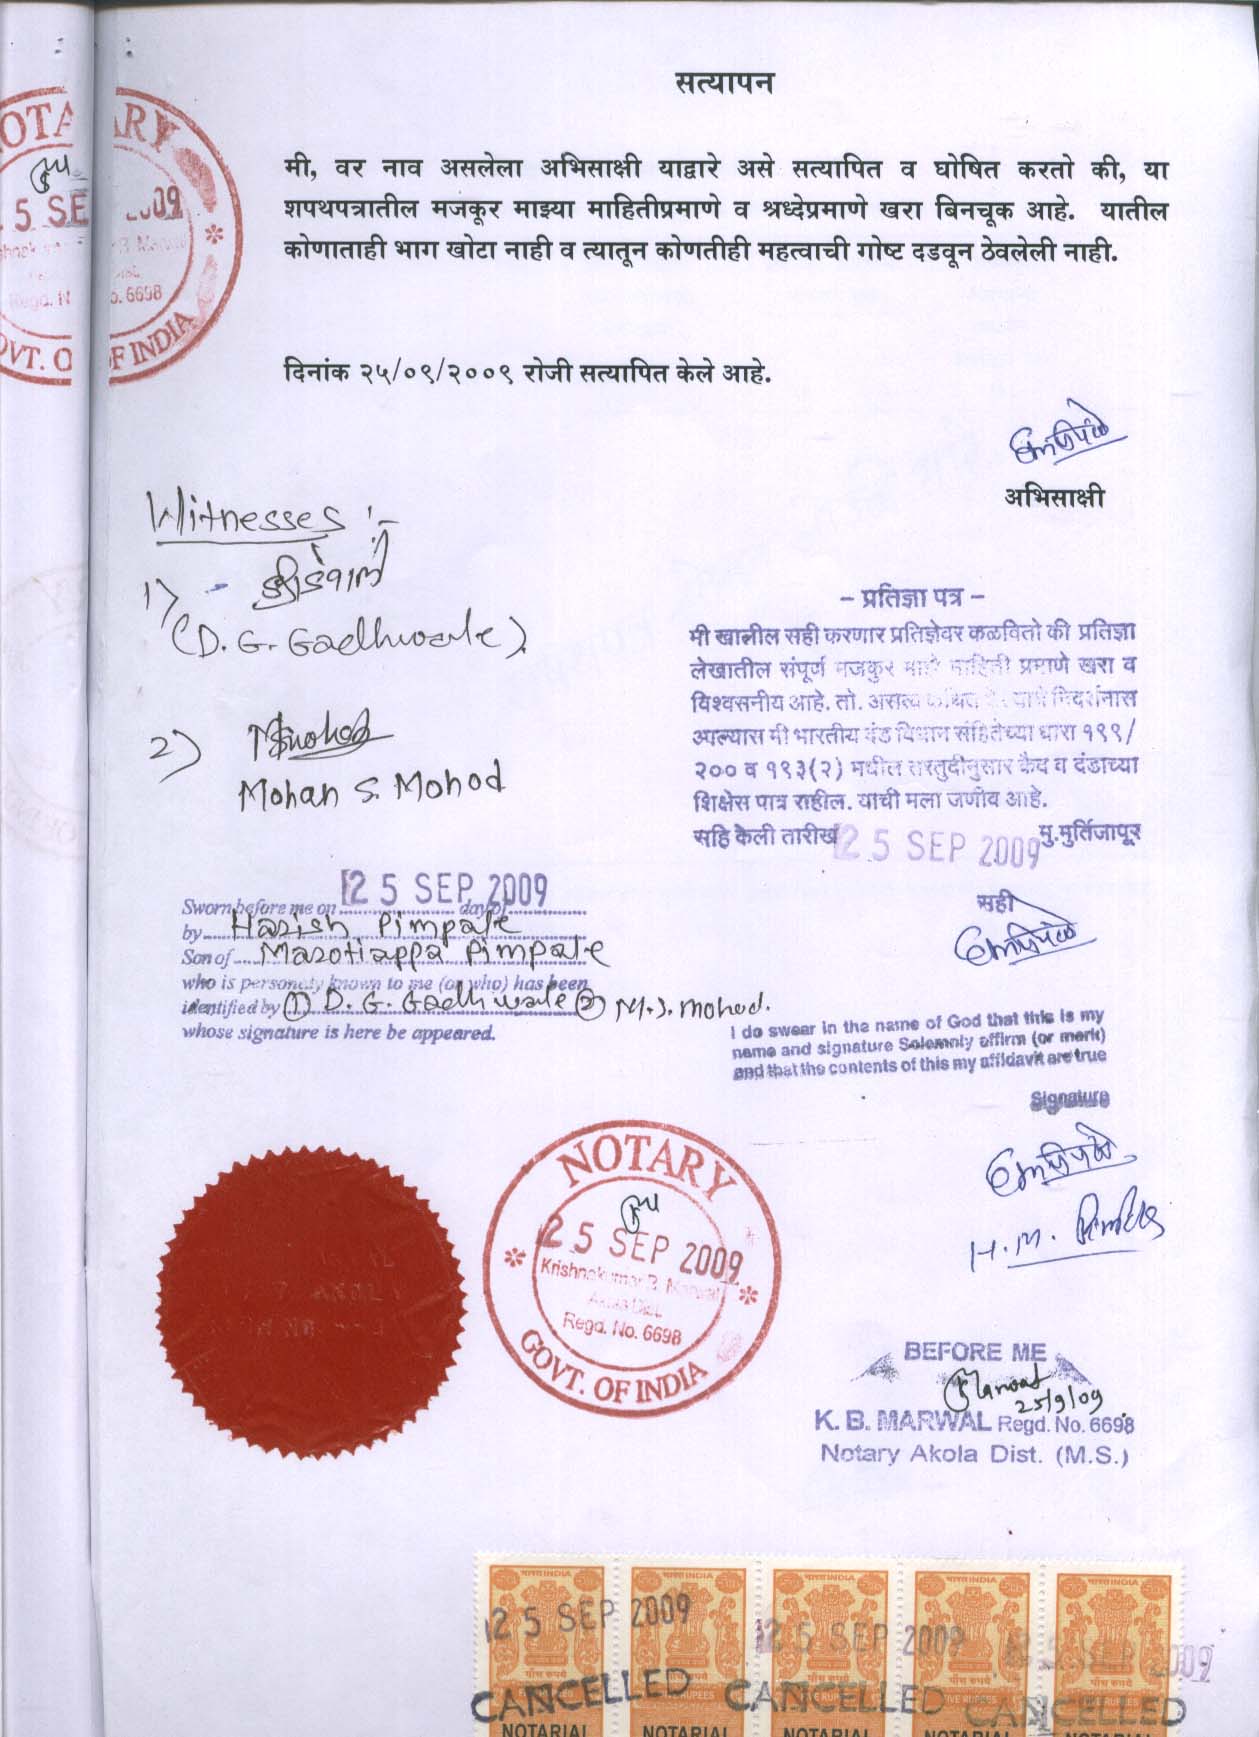 सत्यापन
मी, वर नाव असलेला अभिसाक्षी याद्वारे असे सत्यापित व घोषित करतो की, या
शपथपत्रातील मजकूर माझ्या माहितीप्रमाणे व श्रध्देप्रमाणे खरा बिनचूक आहे. यातील
कोणाताही भाग खोटा नाही व त्यातून कोणतीही महत्वाची गोष्ट दडवून ठेवलेली नाही.
दिनांक २५/०९/२००९ रोजी सत्यापित केले आहे.
अभिसाक्षी
Witnesses :-
1)
(D. G. Gadhwale).
2)
Mohan S. Mohod
- प्रतिज्ञा पत्र -
मी खालील सही करणार प्रतिज्ञेवर कळवितो की प्रतिज्ञा
लेखातील संपूर्ण मजकुर माझे माहिती प्रमाणे खरा व
विश्वसनीय आहे. तो. असत्य निदर्शनास
आल्यास मी भारतीय दंड विधान संहितेच्या धारा १९९/
२०० व १९३(२) मधील तरतुदीनुसार कैद व दंडाच्या
शिक्षेस पात्र राहील. याची मला जणीव आहे.
सहि केली तारीख 25 SEP 2009 मु.मुर्तिजापूर
सही
Sworn before me on 25 SEP 2009 day of
by Harish Pimpale
Son of Marotiappa Pimpale
who is personely known to me (or who) has been
identified by (1) D. G. Gadhwale (2) M.S. Mohod.
whose signature is here be appeared.
I do swear in the name of God that this is my
name and signature Solemnly affirm (or merk)
and that the contents of this my affidavit are true
Signature
H. M. Pimple
NOTARY
25 SEP 2009
Krishnakumar B. Marwal
Akola Dist.
Regd. No. 6698
GOVT. OF INDIA
BEFORE ME
25/9/09
K. B. MARWAL Regd. No. 6698
Notary Akola Dist. (M.S.)
NOTARY
25 SEP 2009
Regd. No. 6698
GOVT. OF INDIA
भारत INDIA भारत INDIA भारत INDIA भारत INDIA भारत INDIA
25 SEP 2009 25 SEP 2009 25 SEP 2009
पाँच रुपये पाँच रुपये पाँच रुपये पाँच रुपये पाँच रुपये
CANCELLED CANCELLED CANCELLED
FIVE RUPEES FIVE RUPEES FIVE RUPEES
NOTARIAL NOTARIAL NOTARIAL NOTARIAL NOTARIAL